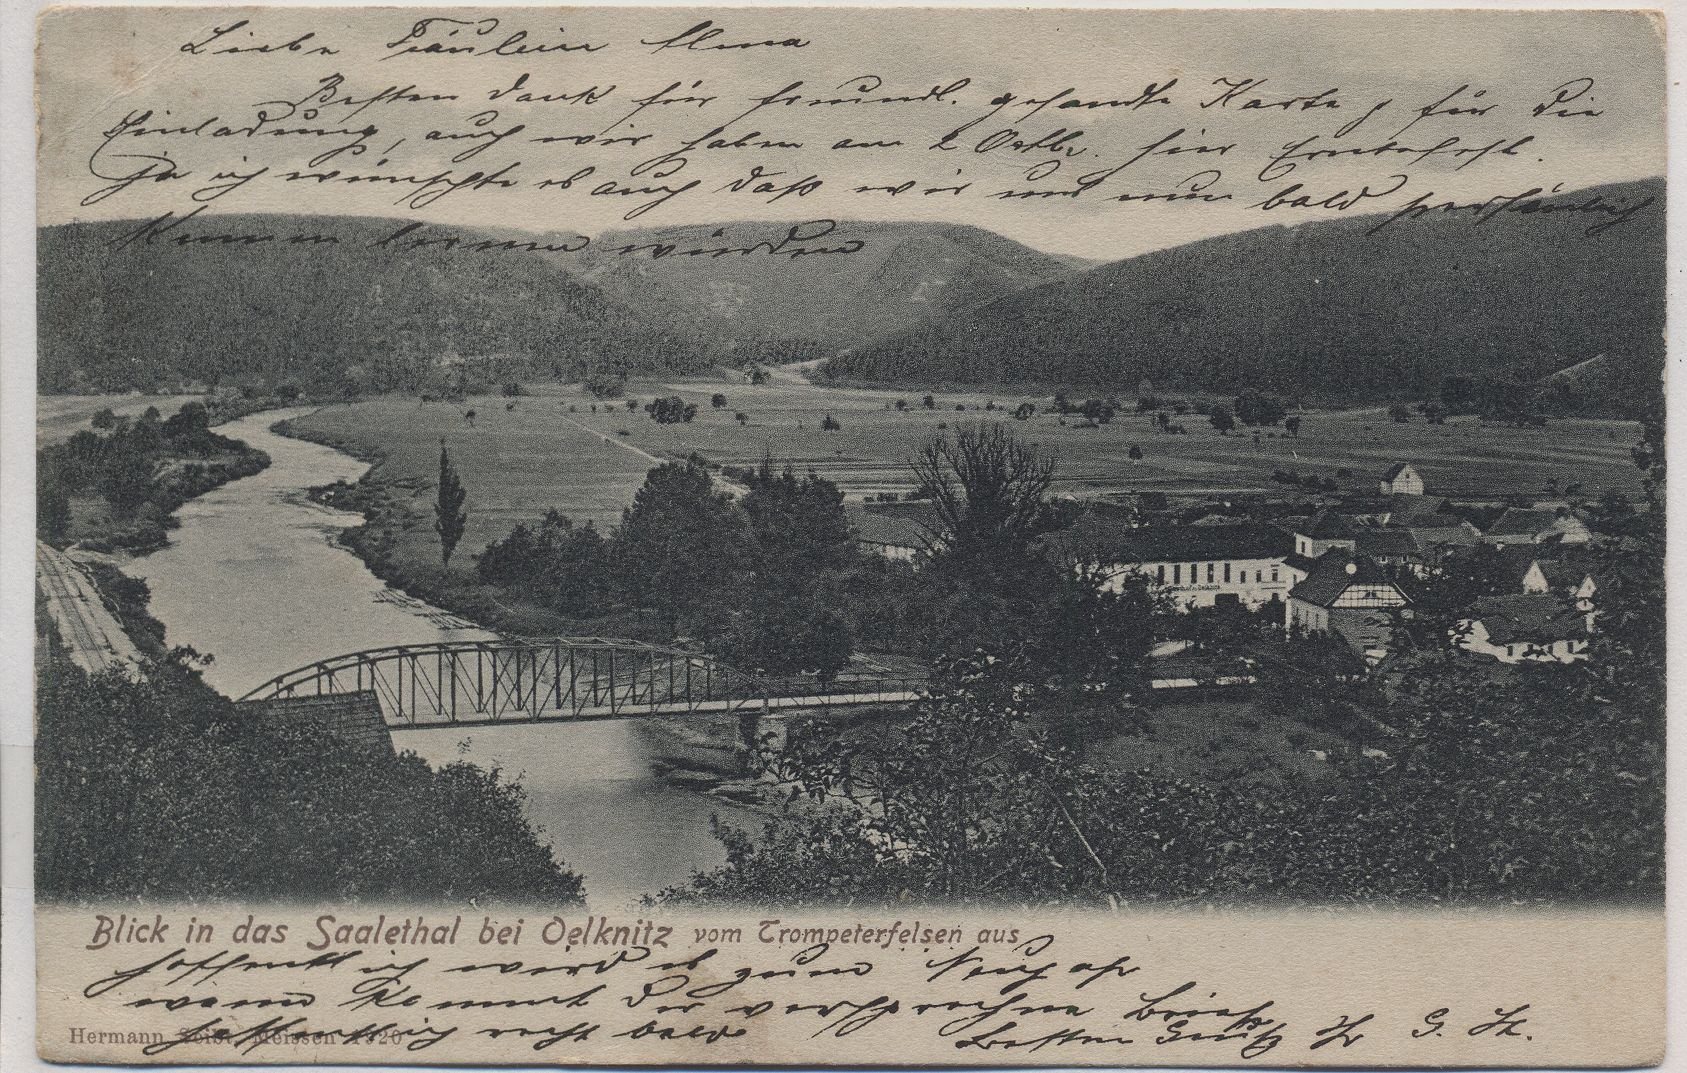 Liebe Fräulein Alma
Besten Dank für freundl. gesandte Karte, für die
Einladung, auch wir haben am 2 Octb. hier Erntefest.
Ja ich wünschte es auch daß wir uns nun bald persönlich
kennen lernen würden
Blick in das Saalethal bei Oelknitz vom Trompeterfelsen aus
hoffentlich wird es zum Neujahr
wann kommt der versprochene Brief
hoffentlich recht bald
Besten Gruß Ihr G. St.
Hermann Seibt, Meissen 1920